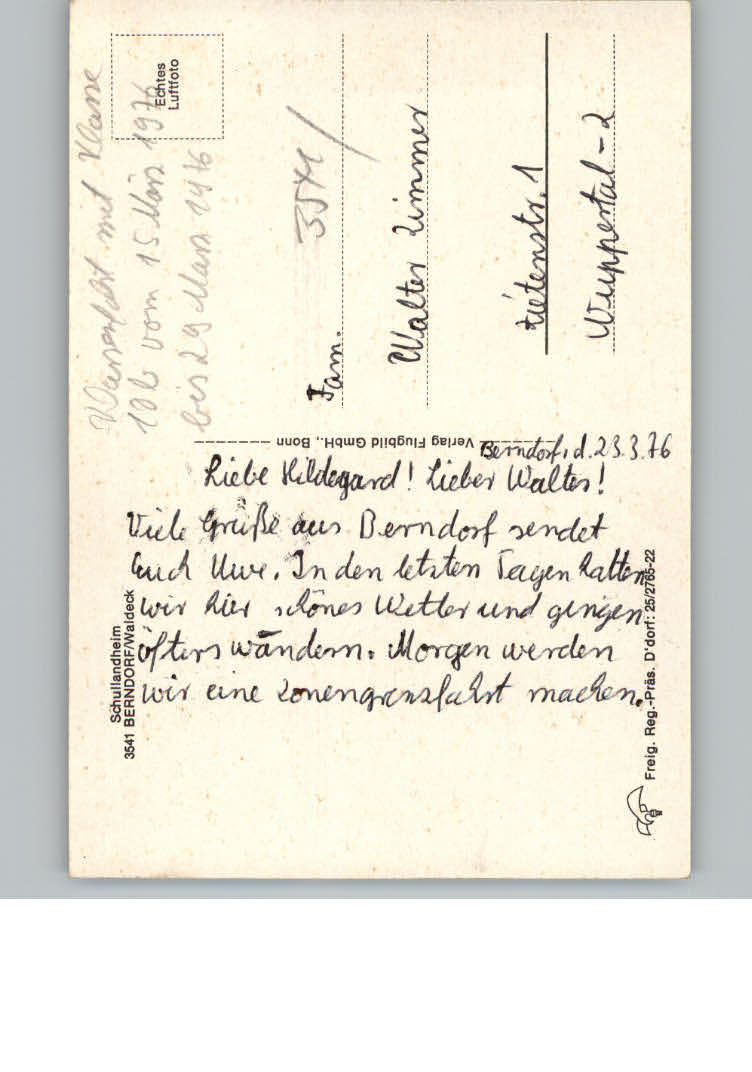 Klassenfahrt mit Klasse
10b vom 15 März 1976
bis 29 März 1976
Echtes
Luftfoto
Fam.
Walter Zimmer
Zietenstr. 1
Wuppertal-2
Verlag Flugbild GmbH., Bonn
Berndorf, d. 23.3.76
Liebe Hildegard! Lieber Walter!
Viele Grüße aus Berndorf sendet
Euch Uwe. In den letzten Tagen hatten
wir hier schönes Wetter und gingen
öfters wandern. Morgen werden
wir eine Zonengrenzfahrt machen.
Schullandheim
3541 BERNDORF/Waldeck
Freig. Reg.-Präs. D'dorf: 25/2765-22